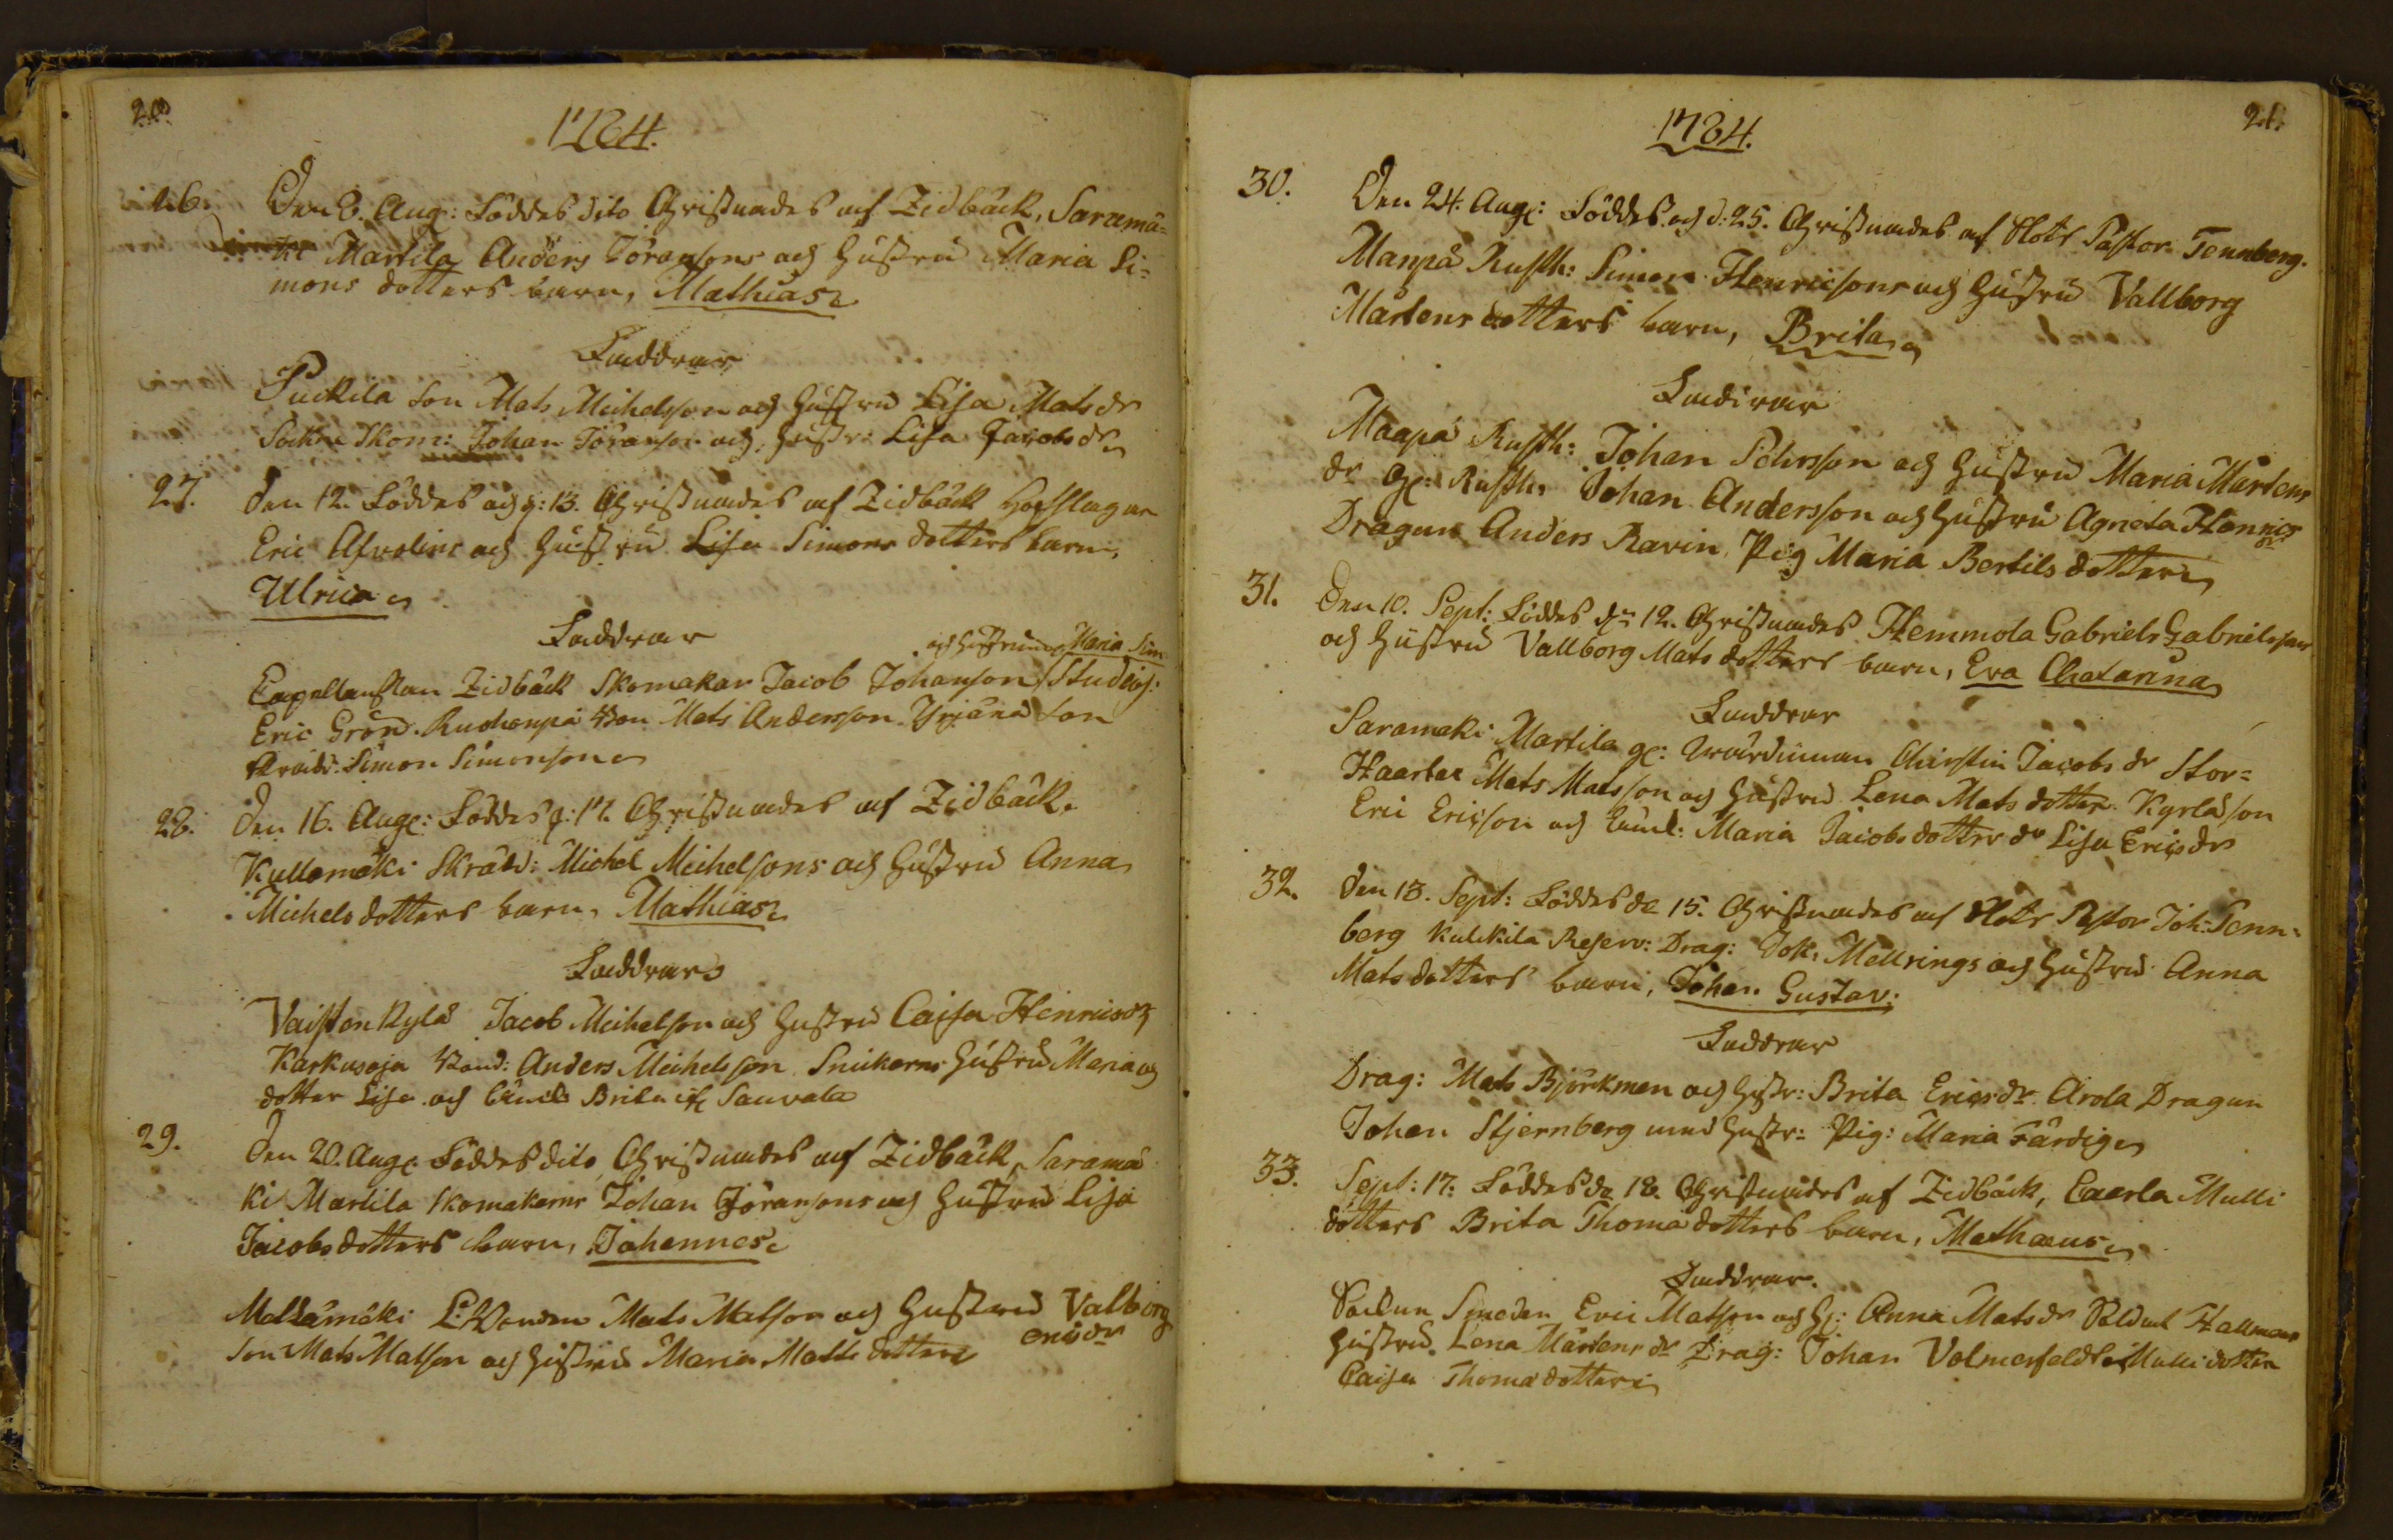 20.
1784.
26. Den 8. Aug: Föddes dito Christnades af Zidbäck, Saramä=
ki Martila Anders Jöransons och hustru Maria Si=
mons dotters barn, Mathias
Faddrar
Puckila son Mats Michelsson och hustru Lisa Mats dr
Skom: Johan Jöranson och hustr: Lisa Jacobs dr
27. Den 12. Föddes och d: 13. Christnades af Zidbäck
Eric och hustru Lisa Simons dotters barn,
Ulrica
Faddrar
och hustrun Maria Sim
Capellanskan Zidbäck Skomakar Jacob Johanson Studios:
Eric Grön. Mats Andersson Yrjänä son
Simon Simonson
28. Den 16. Aug: Föddes d: 17. Christnades af Zidbäck.
Kullamäki Skräd: Michel Michelsons och hustru Anna
Michels dotters barn, Mathias
Faddrar
Vaisten Kylä Jacob Michelson och hustru Caisa Henricsdr
Karkusoja Anders Michelsson Snickarns hustru Maria och
dotter Lisa och Brita if: Sauvala
29. Den 20. Aug: Föddes dito Christnades af Zidbäck, Saramä
ki Martila Skomakarns Johan Jöransons och hustru Lisa
Jacobs dotters barn, Johannes
Mats Matson och hustru Valborg
Erics dr
son Mats Matson och hustru Maria Matts dotter
21.
1784.
30. Den 24. Aug: Föddes och d: 25. Christnades af Slots Pastor Tennberg.
Manpä Rusth: Simon Henricsons och hustru Vallborg
Mårtens dotters barn, Brita
Faddrar
Maapä Rusth: Johan Pehrsson och hustru Maria Mårtens
dr gl: Rusth: Johan Andersson och hustru Agneta Henrics
dr
Dragun Anders Ravin, Pig Maria Bertils dotter
31. Den 10. Sept: Föddes d: 12. Christnades Hemmola Gabriels Gabrielssons
och hustru Vallborg Mats dotters barn, Eva Chatarina
Faddrar
Saramäki Martila gl: Wärdinnan Christin Jacobs dr Stor=
Haartee Mats Matsson och hustru Lena Mats dotter. Kyrlä son
Eric Ericson och Maria Jacobs dotter dr Lisa Erics dr
32. Den 13. Sept: Föddes de 15. Christnades af Slots Pastor Joh: Tenn=
berg Kulckila Reserv: Drag: Joh: Mellrings och hustru Anna
Mats dotters barn, Johan Gustav.
Faddrar
Drag: Mats Björckman och hustr: Brita Erics dr. Arola Dragun
Johan Stjernberg med hustr: Pig: Maria Färdig
33. Sept: 17: Föddes de 18. Christnades af Zidbäck, Caerla Mulli
dotters Brita Thomä dotters barn, Mathaeus
Faddrar.
Smeden Eric Matson och h: Anna Mats dr Soldat Hallmans
hustru Lena Mårtens dr Drag: Johan Volmerfeldt Mulli dotter
Caisa Thomä dotter